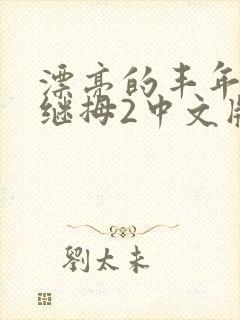 漂亮的丰年
继拇2中文
劉太未